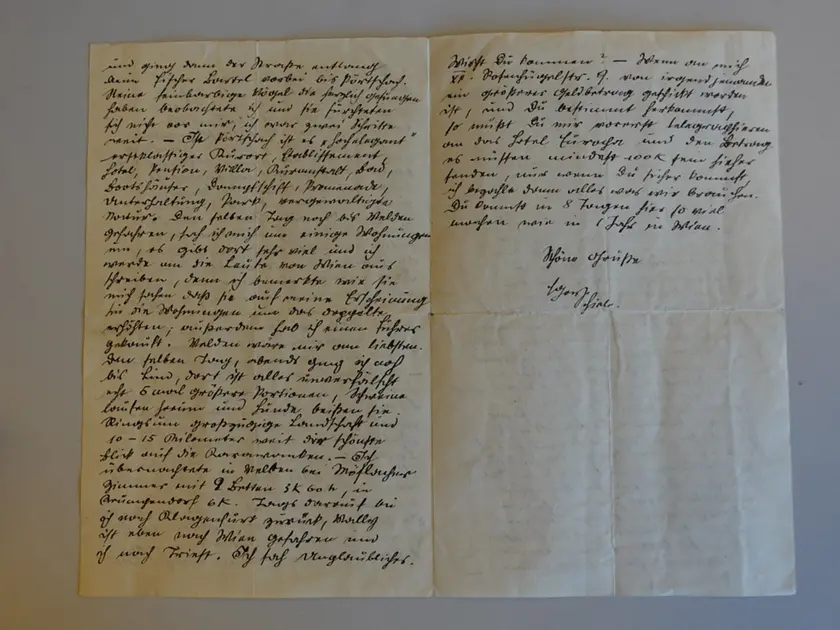 und ging dann der Straße entlang
beim Fischer Bartel vorbei bis Pörtschach.
Kleine feinfarbige Vögel die herzlich gesungen
haben beobachtete ich und sie fürchteten
sich nicht vor mir, ich war zwei Schritte
weit. – In Pörtschach ist es „hochelegant“
erstklassiger Kurort, Etablissement,
Hotel, Pension, Villa, Kuranstalt, Bad,
Bootshäuser, Dampfschiff, Promenade,
Unterhaltung, Park, vergewaltigte
Natur. Den selben Tag noch bis Velden
gefahren, sah ich mich um einige Wohnungen
um, es gibt dort sehr viel und ich
werde an die Leute von Wien aus
schreiben, denn ich bemerkte wie sie
mich sahen daß sie auf meine Erscheinung
hin die Wohnungen um das doppelte
erhöhten; außerdem hab ich einen Führer
gekauft. Velden wäre mir am liebsten.
Den selben Tag, abends ging ich noch
bis Lind, dort ist alles unverfälscht
echt 5 mal größere Portionen, Schweine
laufen herum und Hunde beißen sie.
Ringsum großzügige Landschaft und
10 – 15 Kilometer weit der schönste
Blick auf die Karawanken. – Ich
übernachtete in Velden bei
Zimmer mit 2 Betten 3K 60 h, in
Krumpendorf 6K. Tags darauf bin
ich nach Klagenfurt zurück, Wally
ist eben nach Wien gefahren und
ich nach Triest. Ich sah Unglaubliches.
Wirst Du kommen? – Wenn an mich
von irgend jemanden
ein größerer Geldbetrag geschickt worden
ist, und Du bestimmt herkommst,
so mußt Du mir vorerst telegraphieren
an das Hotel Europa und den Betrag
es müßten mindest 100K sein hieher
senden, nur wenn Du sicher kommst,
ich bezahle dann alles was wir brauchen.
Du kannst in 8 Tagen hier so viel
machen wie in 1 Jahr in Wien.
Schöne Grüße
Egon
Schiele.